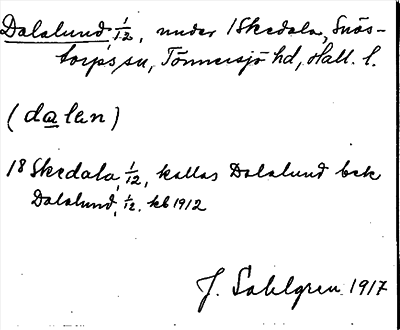 Dalalund 1/12, under 1 Skedala, Snös-
torps sn, Tönnersjö hd, Hall. l.
(dalen)
18 Skedala 1/12, kallas Dalalund bek
Dalalund, 1/12. kb 1912
J. Sahlgren 1917